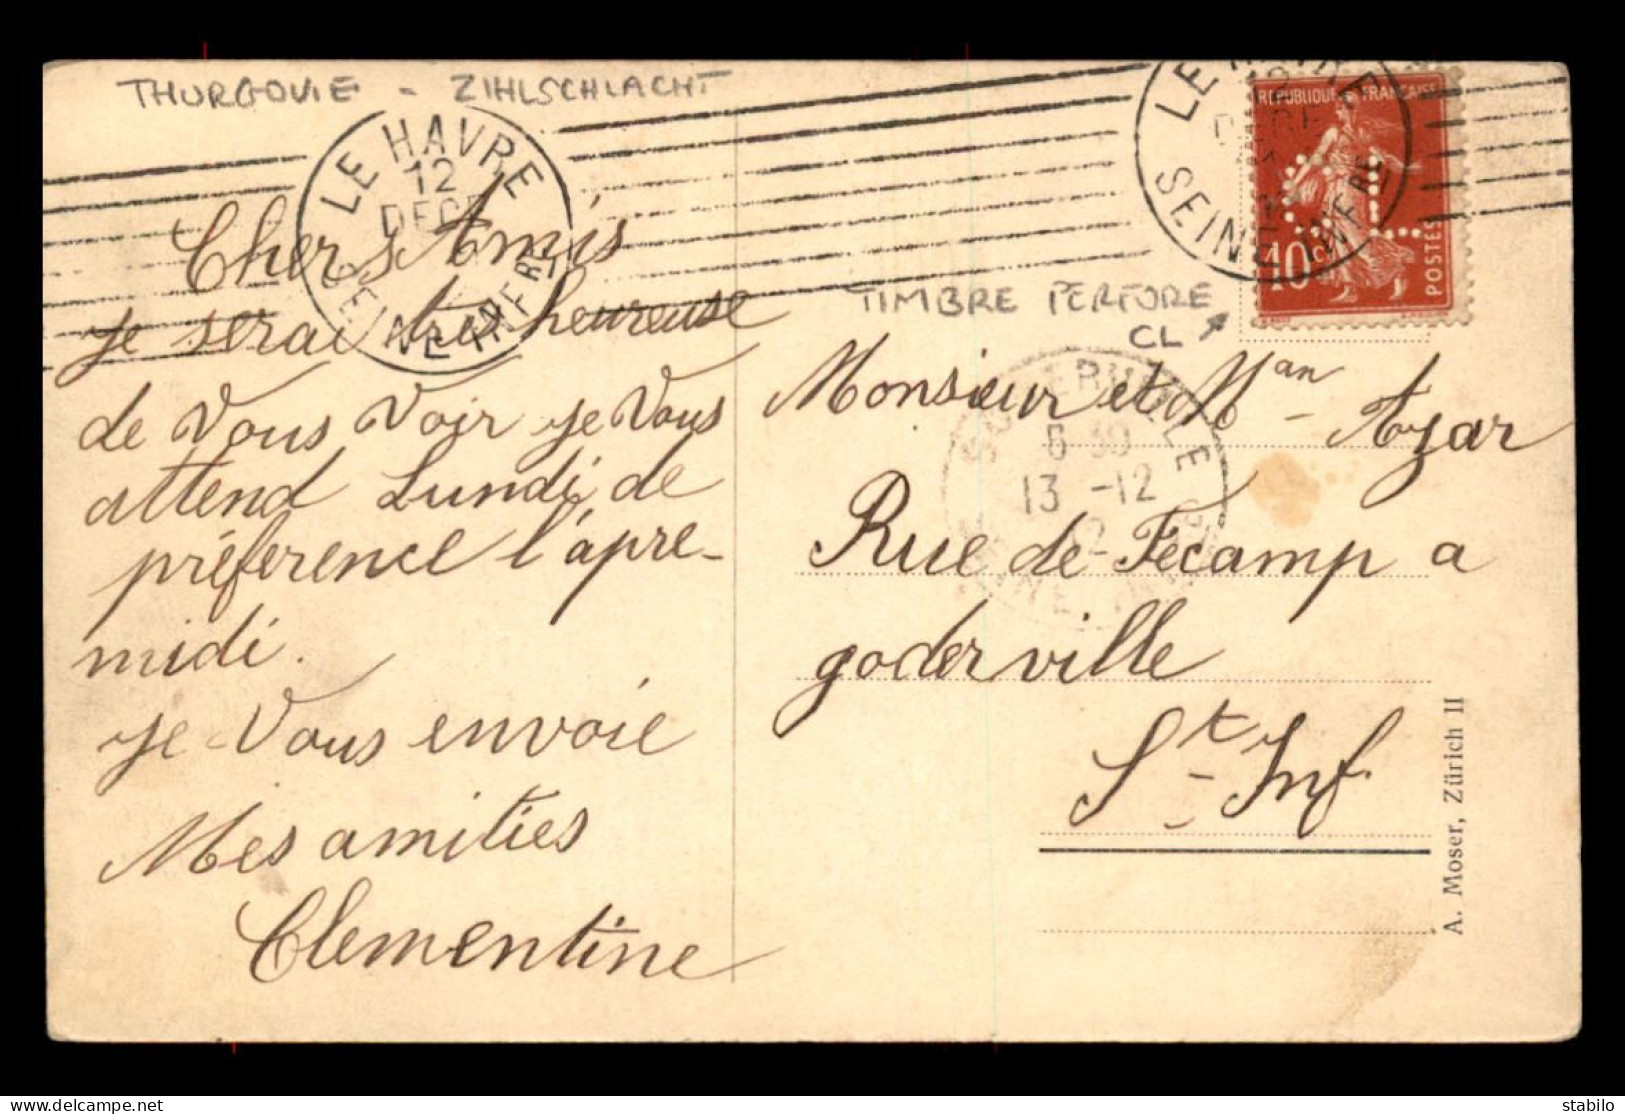 THURGOVIE - ZIHLSCHLACHT
LE HAVRE
12
DECE
SEINE INFRE
Chers Amis
je serai très heureuse
de Vous Voir je Vous
attend Lundi de
préference l'àpre-
midi.
je Vous envoie
Mes amities
Clementine
LE
SEINE INFRE
REPUBLIQUE FRANCAISE
10c
POSTES
TIMBRE PERFORE
CL
6 30
13 -12
Monsieur et Man Azar
Rue de Fecamp a
goderville
St Inf.
A. Moser, Zürich II
stabilo